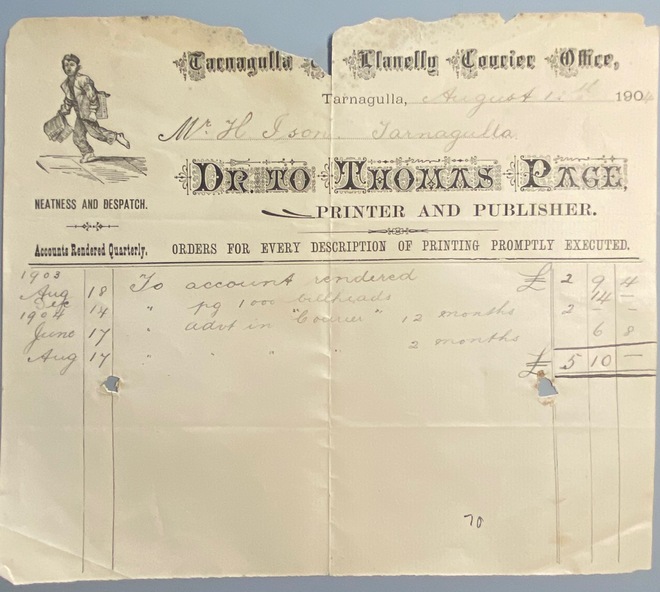 Tarnagulla Llanelly Courier Office,
Tarnagulla, August 1904
Mr. H. Ison. Tarnagulla
DR. TO THOMAS PAGE,
NEATNESS AND DESPATCH.
PRINTER AND PUBLISHER.
Accounts Rendered Quarterly. ORDERS FOR EVERY DESCRIPTION OF PRINTING PROMPTLY EXECUTED.
1903
Aug 18 To account rendered £ 2 9 4
Dec 14 " ptg 1000 billheads 14 –
1904
June 17 " advt in "Courier" 12 months 2 – –
Aug 17 " " " " 2 months 6 8
£ 5 10 –
70